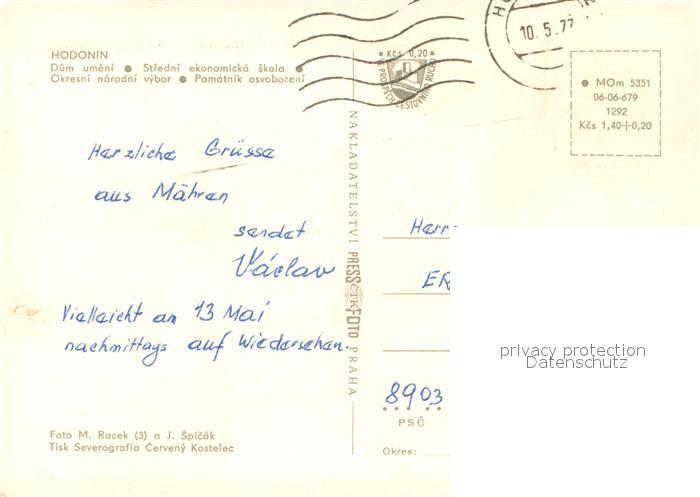 HODONÍN
Dům umění ● Střední ekonomická škola ●
Okresní národní výbor ● Památník osvobození
Kčs 0,20
VE PROSPĚCH CESTOVNÍHO RUCHU
10.5.77
● MOm 5351
06-06-679
1292
Kčs 1,40+0,20
Herzliche Grüsse
aus Mähren
sendet
Václav
Vielleicht am 13 Mai
nachmittags auf Wiedersehen.
NAKLADATELSTVÍ PRESSFOTO PRAHA
ČTK
Herr
ER
8903
PSČ
Okres:
privacy protection
Datenschutz
Foto M. Racek (3) a J. Špičák
Tisk Severografia Červený Kostelec